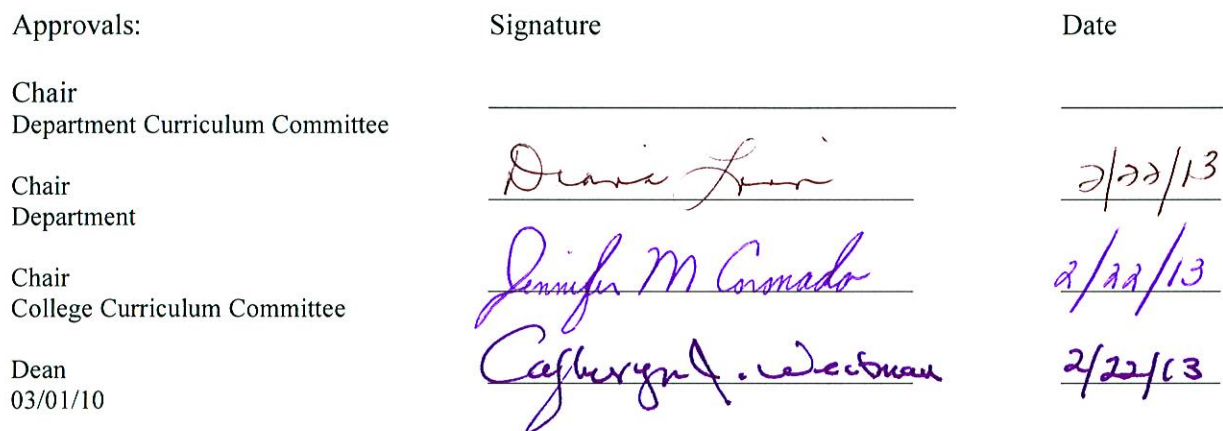 Approvals: Signature Date
Chair
Department Curriculum Committee
Chair
Department
Diana 2/22/13
Chair
College Curriculum Committee
Jennifer M Coronado 2/22/13
Dean
03/01/10
J. Weitman 2/22/13